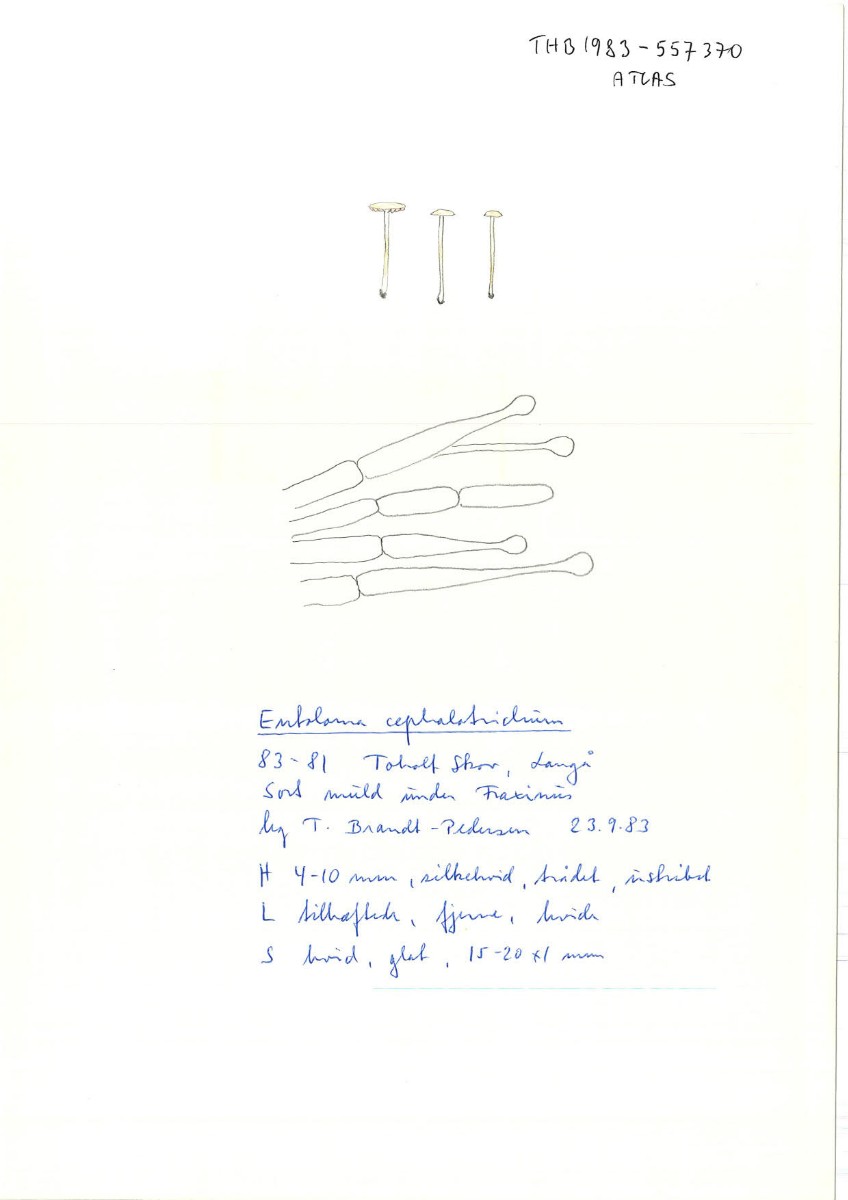 THB1983-557370
ATLAS
Entoloma cephalotrichum
83-81 Skov, Langå
Sort muld under Fraxinus
leg T. Brandt-Pedersen 23.9.83
H 4-10 mm, silkehvid, trådet, ustribet
L tilhæftede, fjerne, hvide
S hvid, glat, 15-20 x1 mm